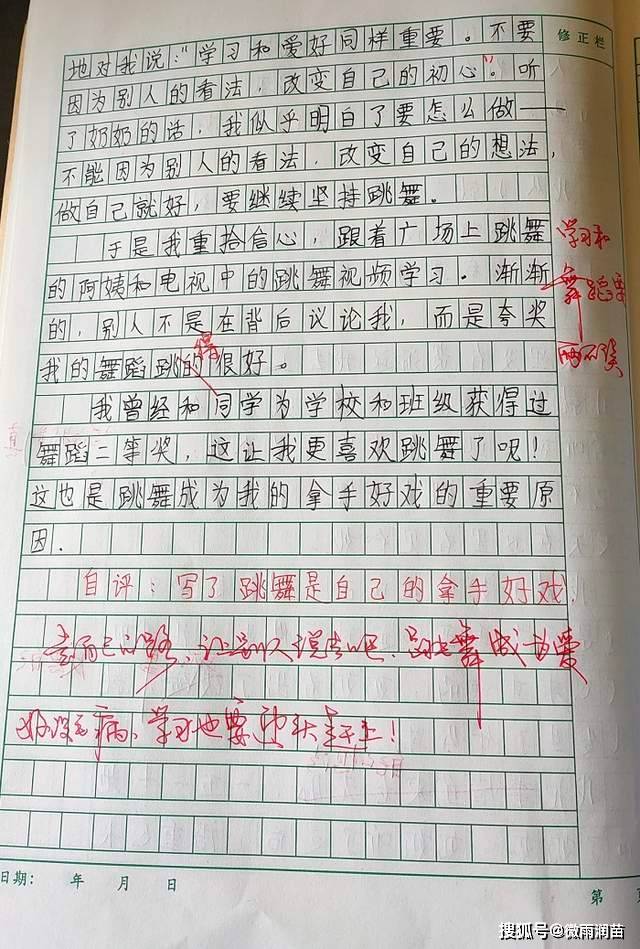 修正栏
地对我说："学习和爱好同样重要。不要
因为别人的看法，改变自己的初心"。听
了奶奶的话，我似乎明白了要怎么做——
不能因为别人的看法，改变自己的想法，
做自己就好，要继续坚持跳舞。
于是我重拾信心，跟着广场上跳舞
的阿姨和电视中的跳舞视频学习。渐渐
的，别人不是在背后议论我，而是夸奖
得
我的舞蹈跳的很好。
学习和
舞蹈要
两不误
我曾经和同学为学校和班级获得过
舞蹈二等奖，这让我更喜欢跳舞了呢！
这也是跳舞成为我的拿手好戏的重要原
因.
自评：写了跳舞是自己的拿手好戏.
走自己的路，让别人说去吧，跳舞成为爱
好没毛病，学习也要迎头赶上！
日期： 年 月 日
第 页
搜狐号@微雨润苗